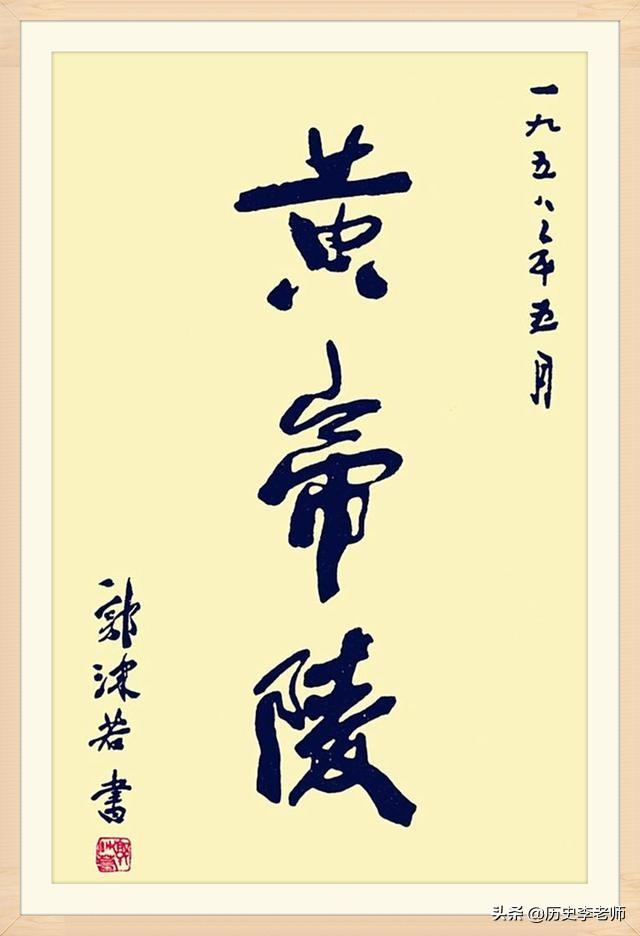 一九五八年五月
黄帝陵
郭沫若書
头条 @历史李老师